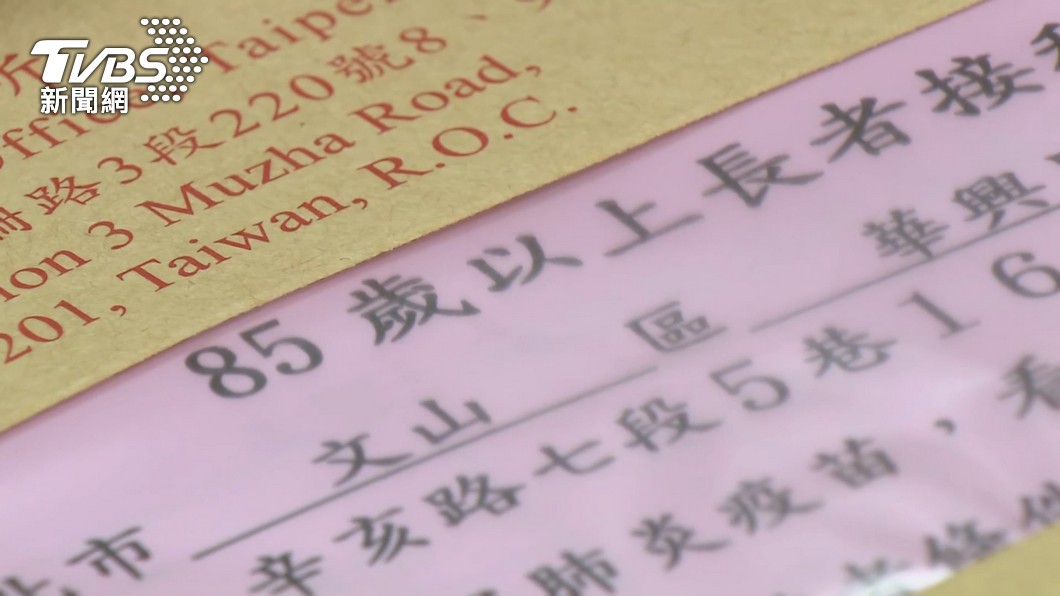 TVBS
新聞網
所
Office, Taipei
柵路3段220號8、9
ion 3 Muzha Road,
201, Taiwan, R.O.C.
85歲以上長者接種
文山 區 華興
北市
辛亥路七段5巷16
肺炎疫苗，看
條件